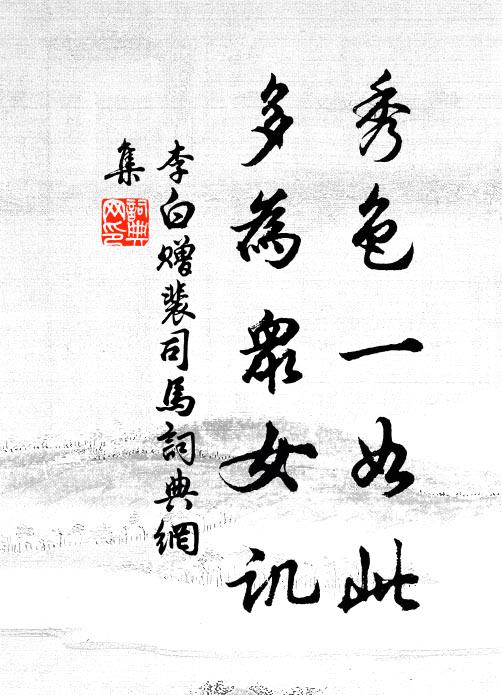 秀色一如此
多為眾女譏
李白贈裴司馬詞典網
集
詞典網印